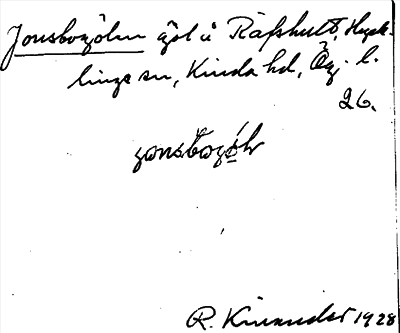 Jonsbogölen göl i Räfshult, Hyck-
linge sn, Kinda hd, Ög. l.
26.
R. Kinander 1928